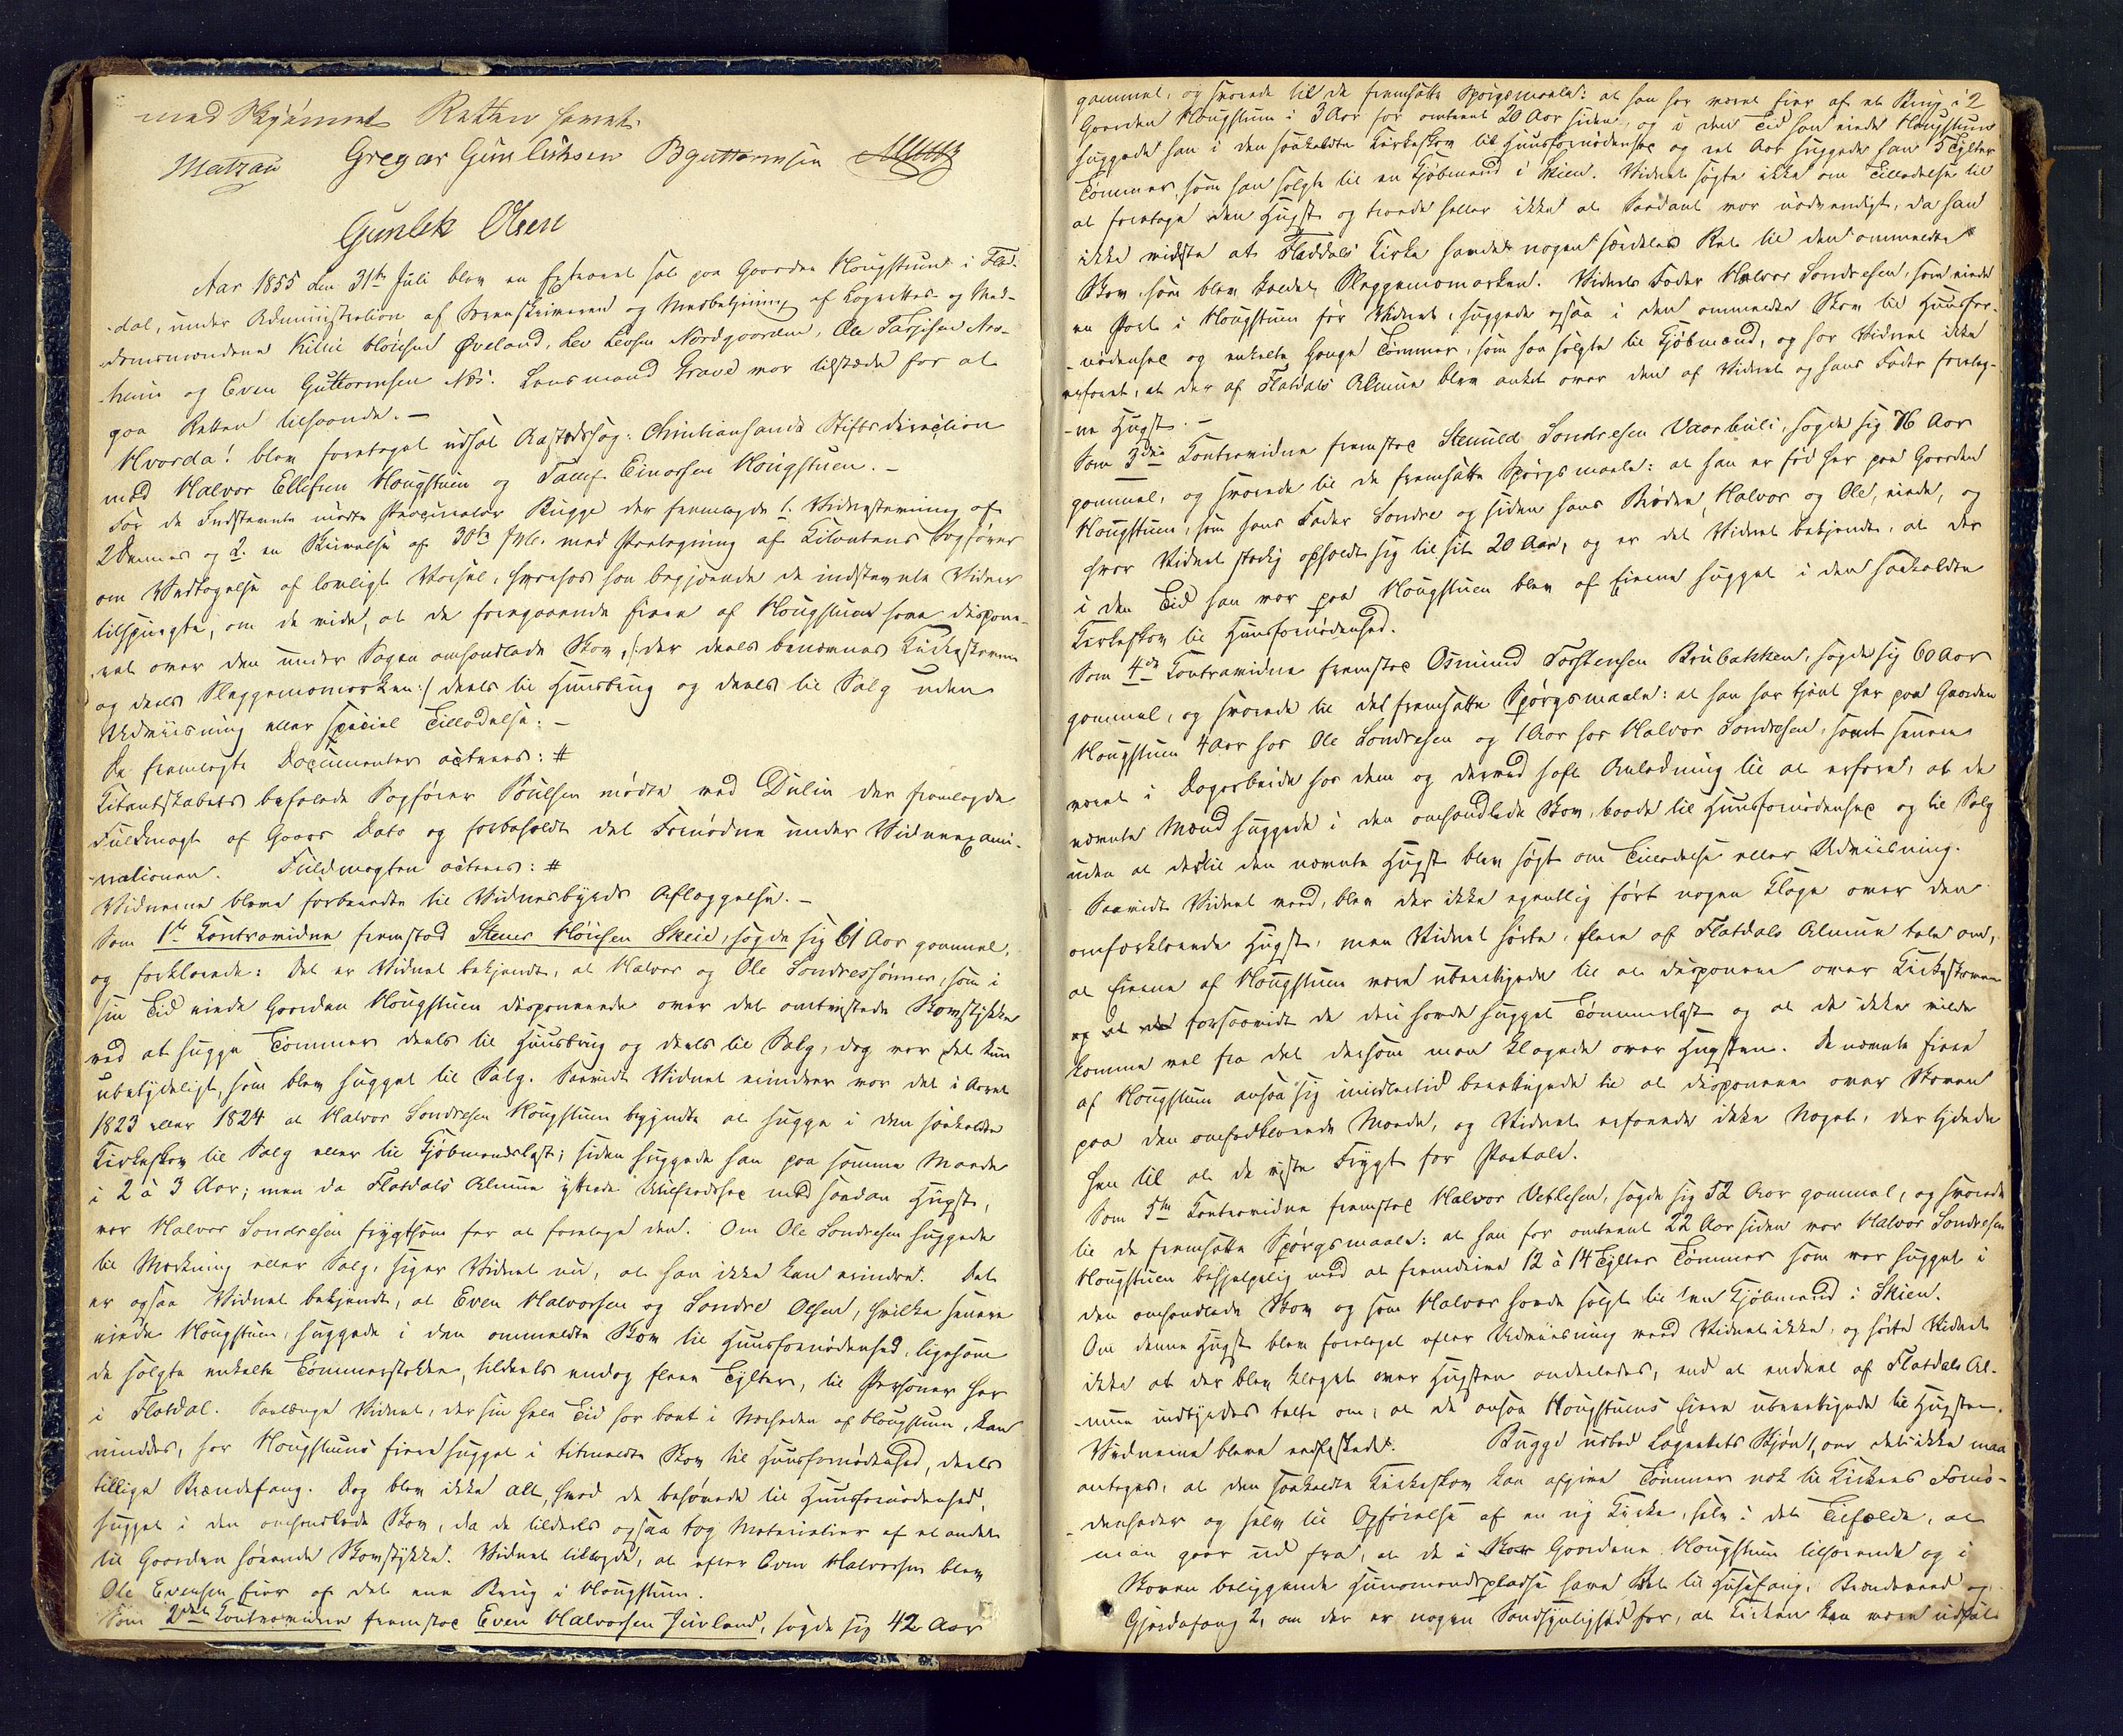 med Skjønnet Retten hævet.
Matzau Gregar Gunliksen BGuttormsen
Gunlek Olsen
Aar 1855 den 31te Juli blev en Extraret sat paa Gaarden Haugstuen i Flat-
dal, under Administration af Sorenskriveren og Meddbetjening af Lagrettes- og Med-
domsmændene Kittil Høiesen Øveland, Lev Levsen Nordgaarden, Ole Tarjesen Aas-
heim og Even Guttormsen Næs. Lensmand Grave var tilstede for at
gaa Retten tilhaande. –
Hvorda! blev foretaget udsat Aastedssag: Christiansands Stiftsdirection
mod Halvor Ellefsen Haugstuen og Tallef Einarsen Haugstuen. –
For de Indstevnte mødte Procurator Bugge der fremlagde 1. Vidnestevning af
2 Dennes og 2. en Skrivelse af 30te f. M. med Paategning af Citantens Sagfører
om Vedtagelse af lovligt Varsel, hvorhos han begjærede de indstevnte Vidner
tilspurgte, om de vide, at de foregaaende Eiere af Haugstuen have dispone-
ret over den under Sagen omhandlede Skov, /: der deels benævnes Kirkeskoven
og deels Slaggemomarken :/ deels til Huusbrug og deels til Salg uden
Udviisning eller special Tilladelse. –
De fremlagte Documenter acteres: #
Citantskabets befalede Sagfører Poulsen mødte ved Dulin der fremlagde
Fuldmagt af Gaars Dato og forbeholdt det Fornødne under Vidneexami-
nationen. Fuldmagten acteres: #
Vidnerne bleve forberedte til Vidnesbyrds Aflæggelse. –
Som 1ste Contravidne fremstod Stener Høiesen Skeie, sagde sig 61 Aar gammel,
og forklarede: Det er Vidnet bekjendt, at Halvor og Ole Sondressønner, som i
sin Tid eiede Gaarden Haugstuen disponerede over det omtvistede Skovstykke
ved at hugge Tømmer deels til Huusbrug og deels til Salg, dog var det kun
ubetydeligt, som blev hugget til Salg. Saavidt Vidnet erindrer var det i Aaret
1823 eller 1824 at Halvor Sondresen Haugstuen begyndte at hugge i den saakaldte
Kirkeskov til Salg eller til Kjøbmandslast; siden huggede han paa samme Maade
i 2 à 3 Aar; men da Flatdals Almue yttrede Utilfredshed med saadan Hugst,
var Halvor Sondresen frygtsom for at foretage den. Om Ole Sondresen huggede
til Mærkning eller Salg, siger Vidnet nu, at han ikke kan erindre. Det
er ogsaa Vidnet bekjendt, at Even Halvorsen og Sondre Olsen, hvilke senere
eiede Haugstuen, huggede i den ommeldte Skov til Huusfornødenhed, ligesom
de solgte enkelte Tømmerstokke, tildeels endog flere Tylter, til Personer her
i Flatdal. Saalænge Vidnet, der sin hele Tid har boet i Nærheden af Haugstuen, kan
mindes, har Haugstuens Eiere hugget i titmeldte Skov til Huusfornødenhed, deels
tillige Brændefang. Dog blev ikke alt, hvad de behøvede til Huusfornødenhed,
hugget i den omhandlede Skov, da de tildeels ogsaa tog Materialier af et andet
til Gaarden hørende Skovstykke. Vidnet tillagde, at efter Even Halvorsen blev
Ole Evensen Eier af det ene Brug i Haugstuen.
Som 2det Contravidne fremstod Even Halvorsen Juvland, sagde sig 42 Aar
gammel, og svarede til de fremsatte Spørgsmaale: at han har været Eier af et Brug i 2
Gaarden Haugstuen i 3 Aar for omtrent 20 Aar siden, og i den Tid han eiede Haugstuen
huggede han i den saakaldte Kirkeskov til Huusfornødenhed og et Aar huggede han 5 Tylter
Tømmer, som han solgte til en Kjøbmand i Skien. Vidnet søgte ikke om Tilladelse til
at foretage den Hugst og troede heller ikke at Saadant var nødvendigt, da han
ikke vidste at Fladdals Kirke havde nogen særdeles Ret til den ommeldte
Skov, som blev kaldet Slaggemomarken. Vidnets Fader Halvor Sondresen, som eiede
en Part i Haugstuen før Vidnet, huggede ogsaa i den ommeldte Skov til Huusfor-
nødenhed og enkelte Gange Tømmer, som han solgte til Kjøbmænd, og har Vidnet ikke
erfaret, at der af Flatdals Almue blev anket over den af Vidnet og hans Fader foretag-
ne Hugst. –
Som 3die Contravidne fremstod Stenuld Sondresen Vaarbuli, sagde sig 76 Aar
gammel, og svarede til de fremsatte Spørgsmaale: at han er fød her paa Gaarden
Haugstuen, som hans Fader Sondre og siden hans Brødre, Halvor og Ole, eiede, og
hvor Vidnet stadig opholdt sig til sit 20 Aar, og er det Vidnet bekjendt, at der
i den Tid han var paa Haugstuen blev af Eierne hugget i den saakaldte
Kirkeskov til Huusfornødenhed.
Som 4de Contravidne fremstod Osmund Torstensen Brubakken, sagde sig 60 Aar
gammel, og svarede til det fremsatte Spørgsmaale: at han har tjent her paa Gaarden
Haugstuen 4 Aar hos Ole Sondresen og 1 Aar hos Halvor Sondresen, samt senere
været i Dagarbeide hos dem og derved havt Anledning til at erfare, at de
nævnte Mænd huggede i den omhandlede Skov, baade til Huusfornødenhed og til Salg
uden at dertil den nævnte Hugst blev søgt om Tilladelse eller Udviisning.
Saavidt Vidnet veed, blev der ikke egentlig ført nogen Klage over den
omforklarede Hugst, men Vidnet hørte, flere af Flatdals Almue tale om,
at Eierne af Haugstuen vare uberettigede til at disponere over Kirkeskoven
og at forsaavidt de deri havde hugget Tømmerlast og at de ikke vilde
komme vel fra det dersom man klagede over Hugsten. De nævnte Eiere
af Haugstuen ansaa sig imidlertid berettigede til at disponere over Skoven
paa den omforklarede Maade, og Vidnet erfarede ikke Noget, der tydede
hen til at de viste Frygt for Paatale.
Som 5te Contravidne fremstod Halvor Vetlesen, sagde sig 52 Aar gammel, og svarede
til de fremsatte Spørgsmaale: at han for omtrent 22 Aar siden var Halvor Sondresen
Haugstuen behjelpelig med at fremdrive 12 à 14 Tylter Tømmer som var hugget i
den omhandlede Skov og som Halvor havde solgt til en Kjøbmand i Skien.
Om denne Hugst blev foretaget efter Udviisning veed Vidnet ikke, og hørte Vidnet
ikke at der blev klaget over Hugsten anderledes, end at endeel af Flatdals Al-
mue indbyrdes talte om, at de ansaa Haugstuens Eiere uberettigede til Hugsten.
Vidnerne bleve eedfæstede. Bugge udbad Lagrettets Skjøn 1, om det ikke maa
antages, at den saakaldte Kirkeskov kan afgive Tømmer nok til Kirkens Fornø-
denheder og selv til Opførelse af en ny Kirke, selv i det Tilfælde, at
man gaar ud fra, at de i Gaardene Haugstuen tilhørende og i
Skoven beliggende Huusmandspladse have Ret til Husefang, Brændeved og
Gjerdefang 2, om der er nogen Sandsynlighed for, at Kirken kan være udsat